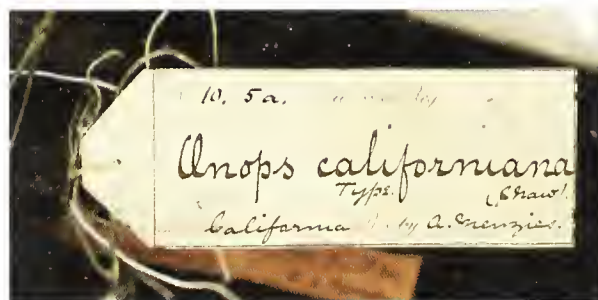 10. 5a. by
Anops californiana
Type. (Shaw)
California by A. Menzies.